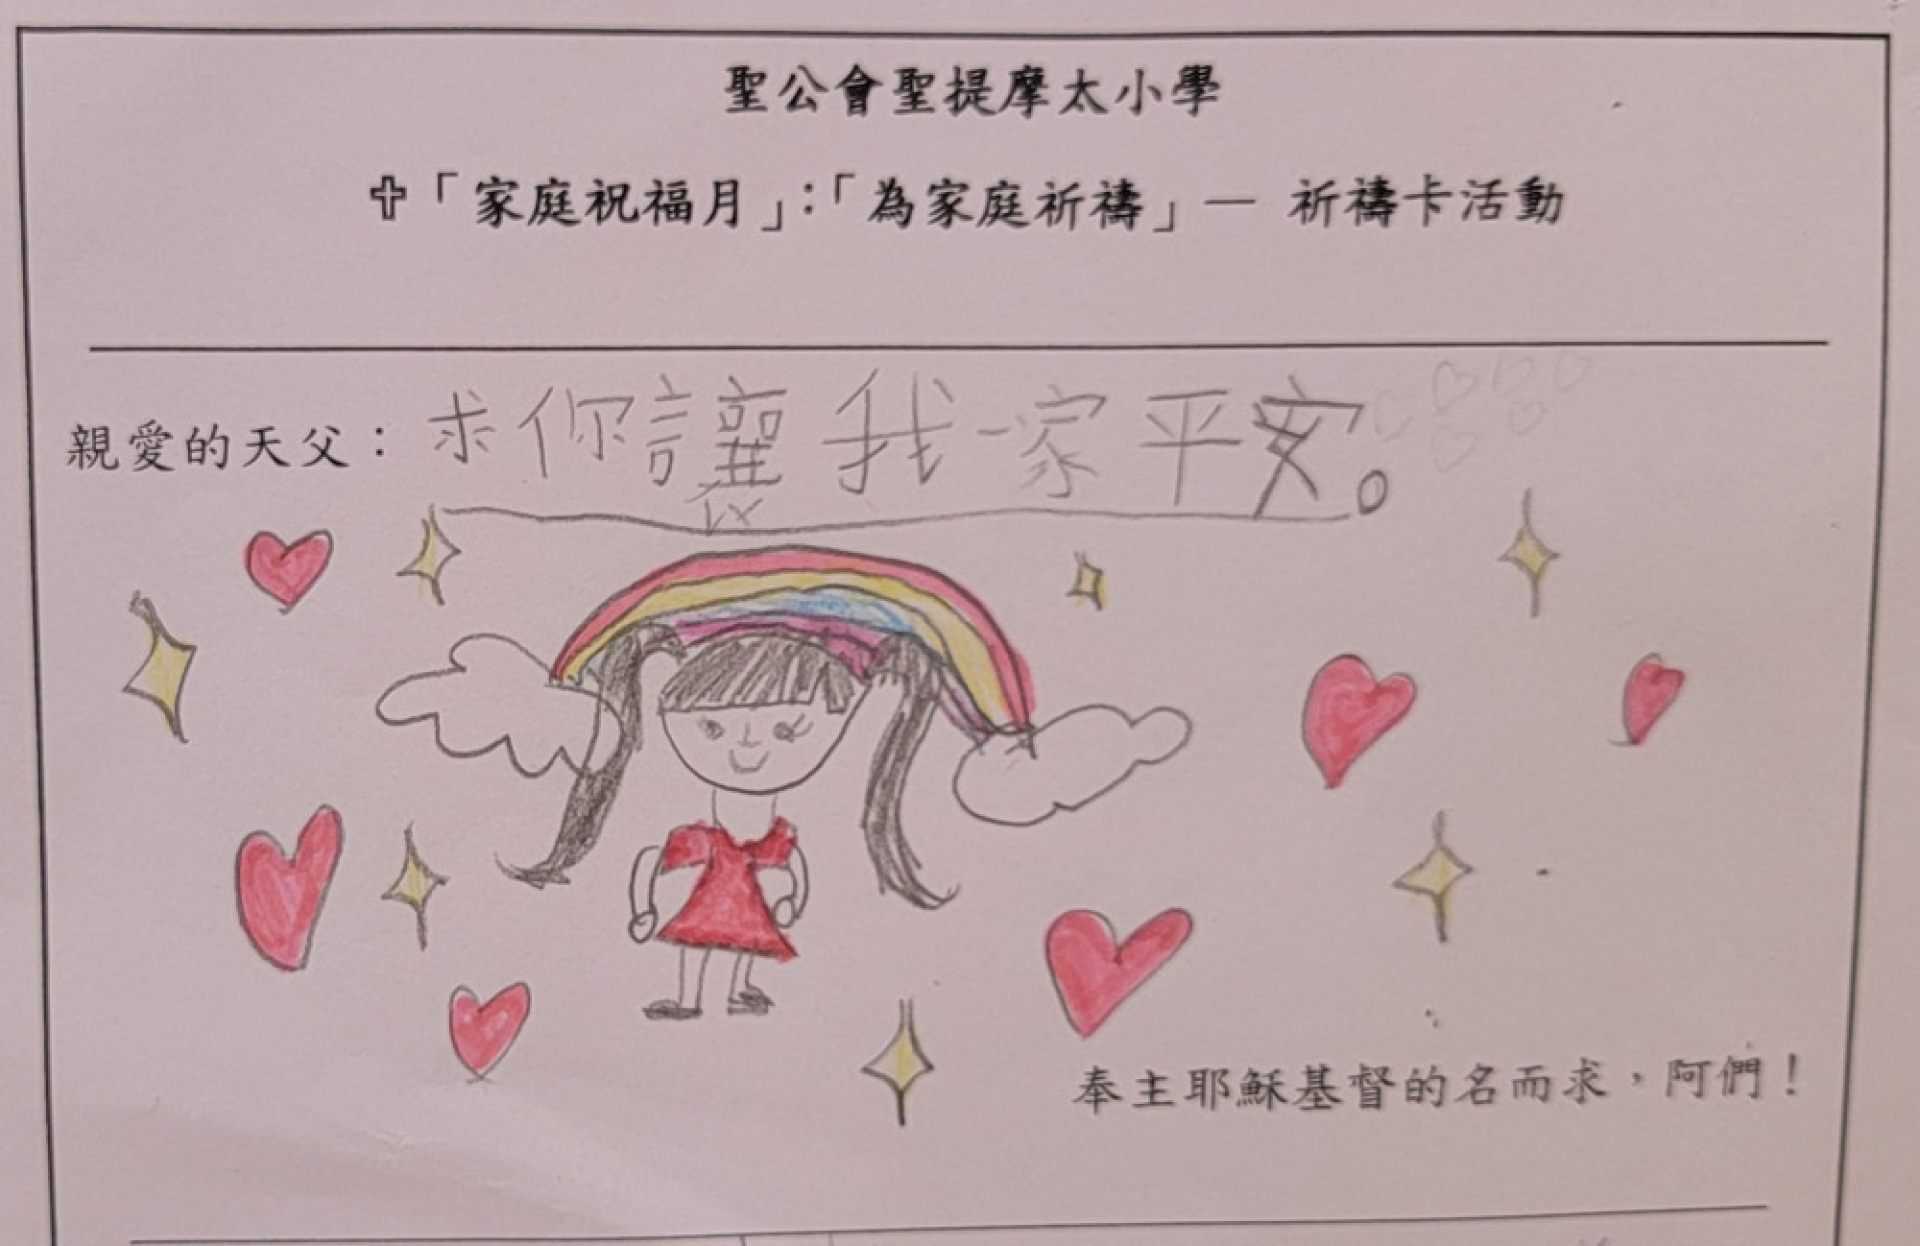 聖公會聖提摩太小學
✞「家庭祝福月」:「為家庭祈禱」— 祈禱卡活動
親愛的天父：求你讓我一家平安。
奉主耶穌基督的名而求，阿們！